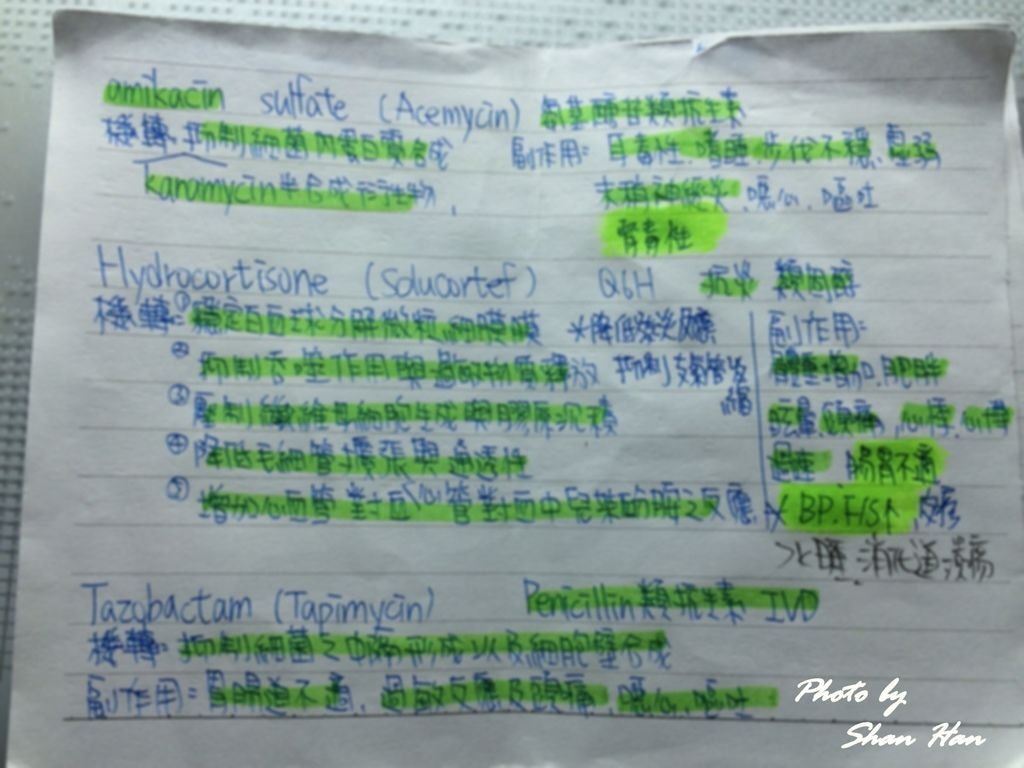 amikacin sulfate (Acemycin) 氨基醣苷類抗生素
機轉: 抑制細菌內蛋白質合成 副作用: 耳毒性、嗜睡、步伐不穩、虛弱
kanamycin半合成衍生物, 末梢神經炎、噁心、嘔吐
腎毒性
Hydrocortisone (Solucortef) Q6H 抗炎 類固醇
機轉: ① 穩定白血球分解微粒細膜膜 *降低發炎反應 副作用:
② 抑制吞噬作用與過敏物質釋放 抑制支氣管收縮 體重增加、肥胖
③ 壓制纖維母細胞生成與膠原沉積 眩暈、頭痛、心悸、心搏
④ 降低毛細管擴張與通透性 過速 腸胃不適
⑤ 增加心血管對 管對血中兒茶酚胺之反應 * BP、F/S↑、皮疹
水腫、消化道潰瘍
Tazobactam (Tapimycin) Penicillin類抗生素 IVD
機轉: 抑制細菌之中隔形成以及細胞壁合成
副作用: 胃腸道不適、過敏反應及頭痛、噁心、嘔吐
Photo by
Shan Han